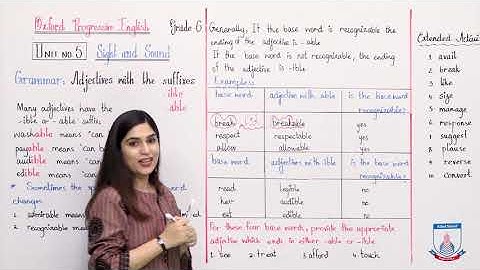 Oxford Progressive English Grade 6
UNIT NO 5 Sight and Sound
Grammar: Adjectives with the suffixes
ible
able
Many adjectives have the
-ible or -able suffix
washable means 'can b
payable means 'can b
audible means 'can b
edible means 'can
* Sometimes the sp
change:
1.
2. recognisable mean
Generally, If the base word is recognizable the
ending of the adjective is -able
If the base word is not recognizable, the ending
of the adjective is -ible.
Examples:
base word adjective with able is the base word
recognizable?
break breakable yes
respect respectable yes
allow allowable yes
base word adjectives with ible is the base word
recognizable?
read legible no
hear audible no
eat edible no
For these four base words, provide the appropriate
adjective which ends in either -able or -ible
1. see 2. treat 3. afford 4. touch
Extended Activi
1 avail
2 break
3 like
4 size
5 manage
6 response
7 suggest
8 plause
9 reverse
10 convert